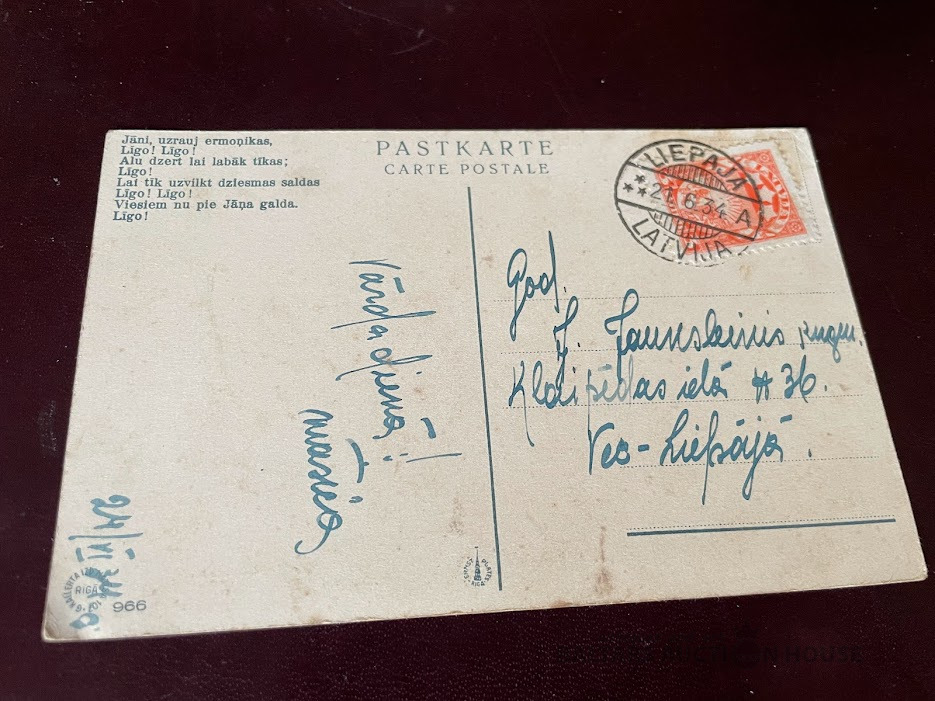 Jāni, uzrauj ermoņikas,
Līgo! Līgo!
Alu dzert lai labāk tīkas;
Līgo!
Lai tīk uzvilkt dziesmas saldas
Līgo! Līgo!
Viesiem nu pie Jāņa galda.
Līgo!
PASTKARTE
CARTE POSTALE
LIEPAJA
21 6.34 A
LATVIJA
God.
J. Jaunskeinis kungu.
Klaipēdas ielā # 36.
Vec-Liepājā.
Vārda dienā!
24/VI
RIGA
966
HOUSE